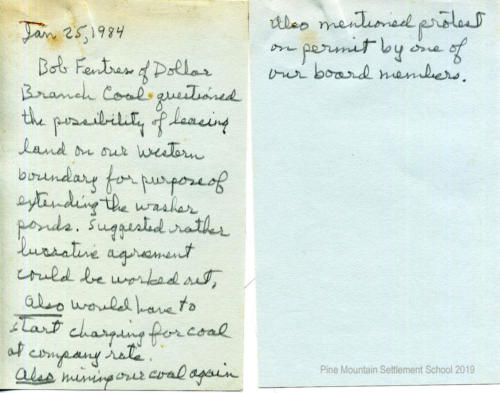 Jan 25, 1984
Bob Fentress of Dollar
Branch Coal questioned
the possibility of leasing
land on our western
boundary for purpose of
extending the washer
ponds. Suggested rather
lucrative agreement
could be worked out,
Also would have to
start charging for coal
at company rate.
Also mining our coal again
Also mentioned protest
on permit by one of
our board members.
Pine Mountain Settlement School 2019